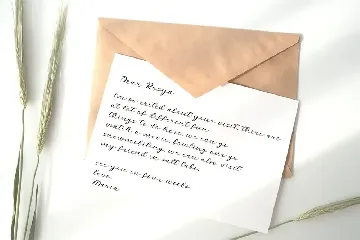 Dear Rasya
I'm so exited about your visit. there are
a lot of different fun
things to do here we can go
watch a movie, bowling and go
snowmobiling. we can also visit
my friend in salt lake.
see you in four weeks
love
Maria